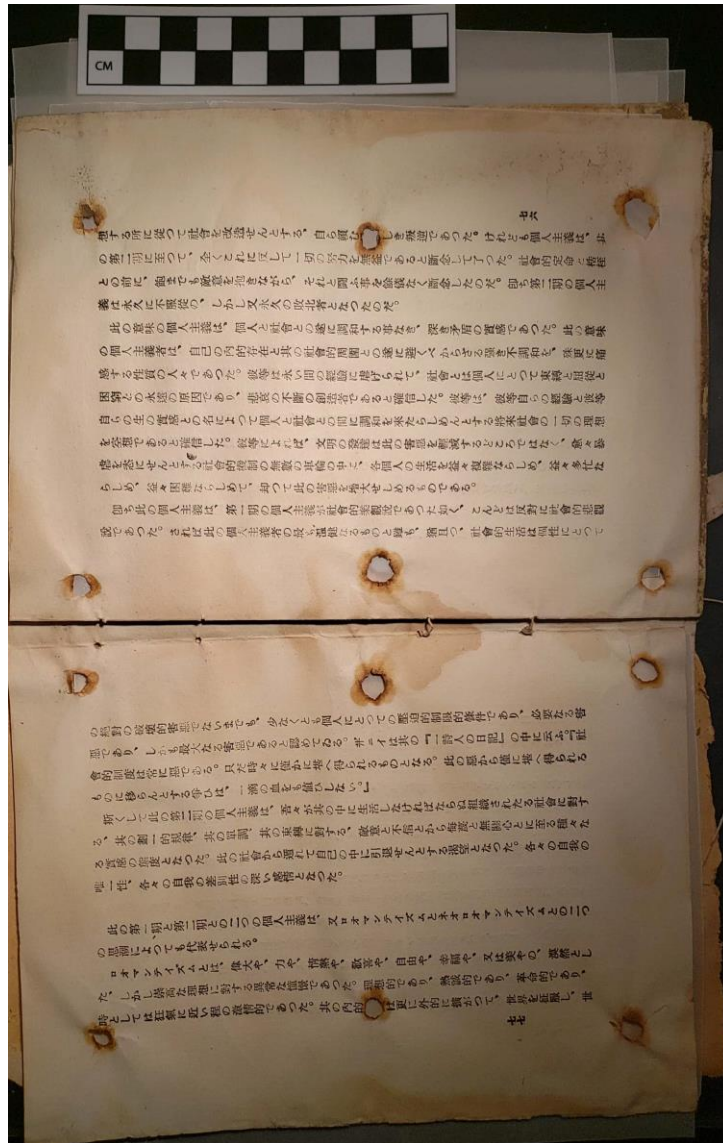 七六
想する所に從つて社會を改造せんとする、自ら しき叛逆であつた。けれども個人主義は、其
の第二期に至つて、全くこれに反して一切の努力を無益であると斷念して了つた。社會的定命と桎梏
との前に、飽までも敵意を抱きながら、それと鬪ふ事を餘儀なく斷念したのだ。卽ち第二期の個人主
義は永久に不服從の、しかし又永久の敗北者となつたのだ。
此の意味の個人主義は、個人と社會との遂に調和する事なき、深き矛盾の實感であつた。此の意味
の個人主義者は、自己の内的存在と其の社會的周圍との遂に避くべからざる強き不調和を、殊更に痛
感する性質の人々であつた。彼等は永い間の經驗に虐げられて、社會とは個人にとつて束縛と屈從と
困窮との永遠の原因であり、悲哀の不斷の創造者であると確信した。彼等は、彼等自らの經驗と彼等
自らの生の實感との名によつて個人と社會との間に調和を來たらしめんとする將來社會の一切の理想
を空想であると確信した。彼等によれば、文明の發達は此の害惡を輕減するどころではなく、愈々暴
虐を恣にせんとする社會的機制の無數の車輪の中に、各個人の生活を益々複雜ならしめ、益々多忙な
らしめ、益々困難ならしめて、却つて此の害惡を增大せしめるものである。
卽ち此の個人主義は、第一期の個人主義が社會的樂觀說であつた如く、こんどは反對に社會的悲觀
說であつた。されば此の個人主義者の最も溫健なるものと雖も、猶且つ、社會的生活は個性にとつて
の絕對の破壞的害惡でないまでも、少なくとも個人にとつての壓迫的制限的條件であり、必要なる害
惡であり、しかも最大なる害惡であると認めてゐる。 イは其の『一詩人の日記』の中に云ふ。『社
會的制度は常に惡である。只だ時々に僅かに堪へ得られるものとなる。此の惡から僅に堪へ得られる
ものに移らんとする爭ひは、一滴の血をも値ひしない。』
斯くして此の第二期の個人主義は、吾々が其の中に生活しなければならぬ組織されたる社會に對す
る、其の劃一的規律、其の單調、其の束縛に對する、敵意と不信とから侮蔑と無關心とに至る種々な
る實感的態度となつた。此の社會から遁れて自己の中に引退せんとする渴望となつた。各々の自我の
唯一性、各々の自我の差別性の深い感情となつた。
此の第一期と第二期との二つの個人主義は、又ロオマンテイズムとネオロオマンテイズムとの二つ
の思潮によつても代表せられる。
ロオマンテイズムとは、偉大や、力や、情熱や、歡喜や、自由や、幸福や、又は美やの、漠然とし
た、しかし崇高な理想に對する異常な憧憬であつた。理想的であり、熱談的であり、革命的であり、
時としては狂氣に近い程の激情的であつた。其の內的 は更に外的に擴がつて、世界を征服し、世
七七
CM